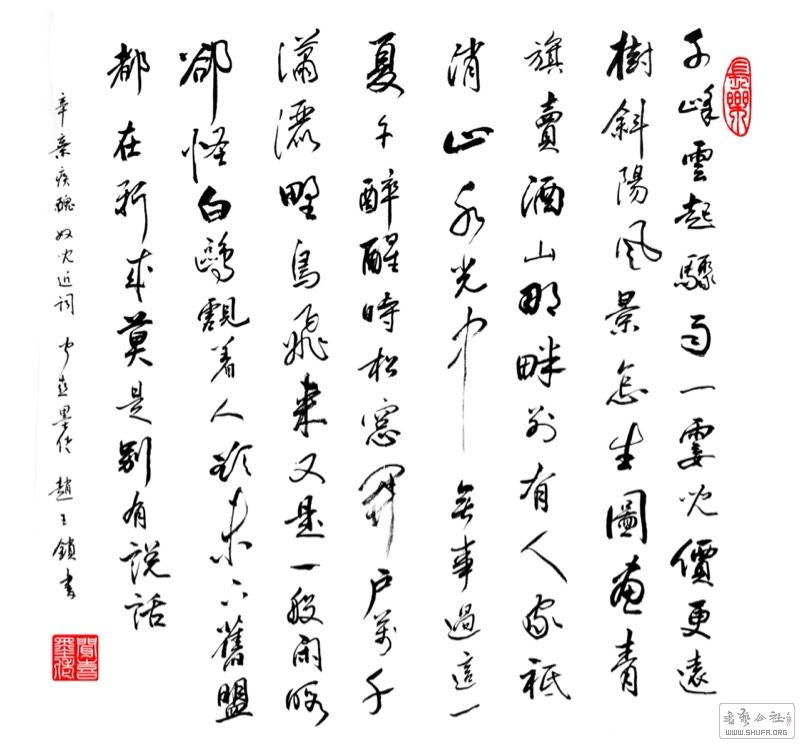 長樂
千峰雲起驟雨一霎兒價更遠
樹斜陽風景怎生圖畫青
旗賣酒山那畔別有人家祗
消山水光中 無事過這一
夏午醉醒時松窓户萬千
瀟灑野鳥飛來又是一般閑暇
卻怪白鷗覷着人欲未下舊盟
都在新來莫是別有説話
辛棄疾醜奴兒近詞 墨 趙玉鎖書
聞喜
書藝公社
WWW.SHUFA.ORG